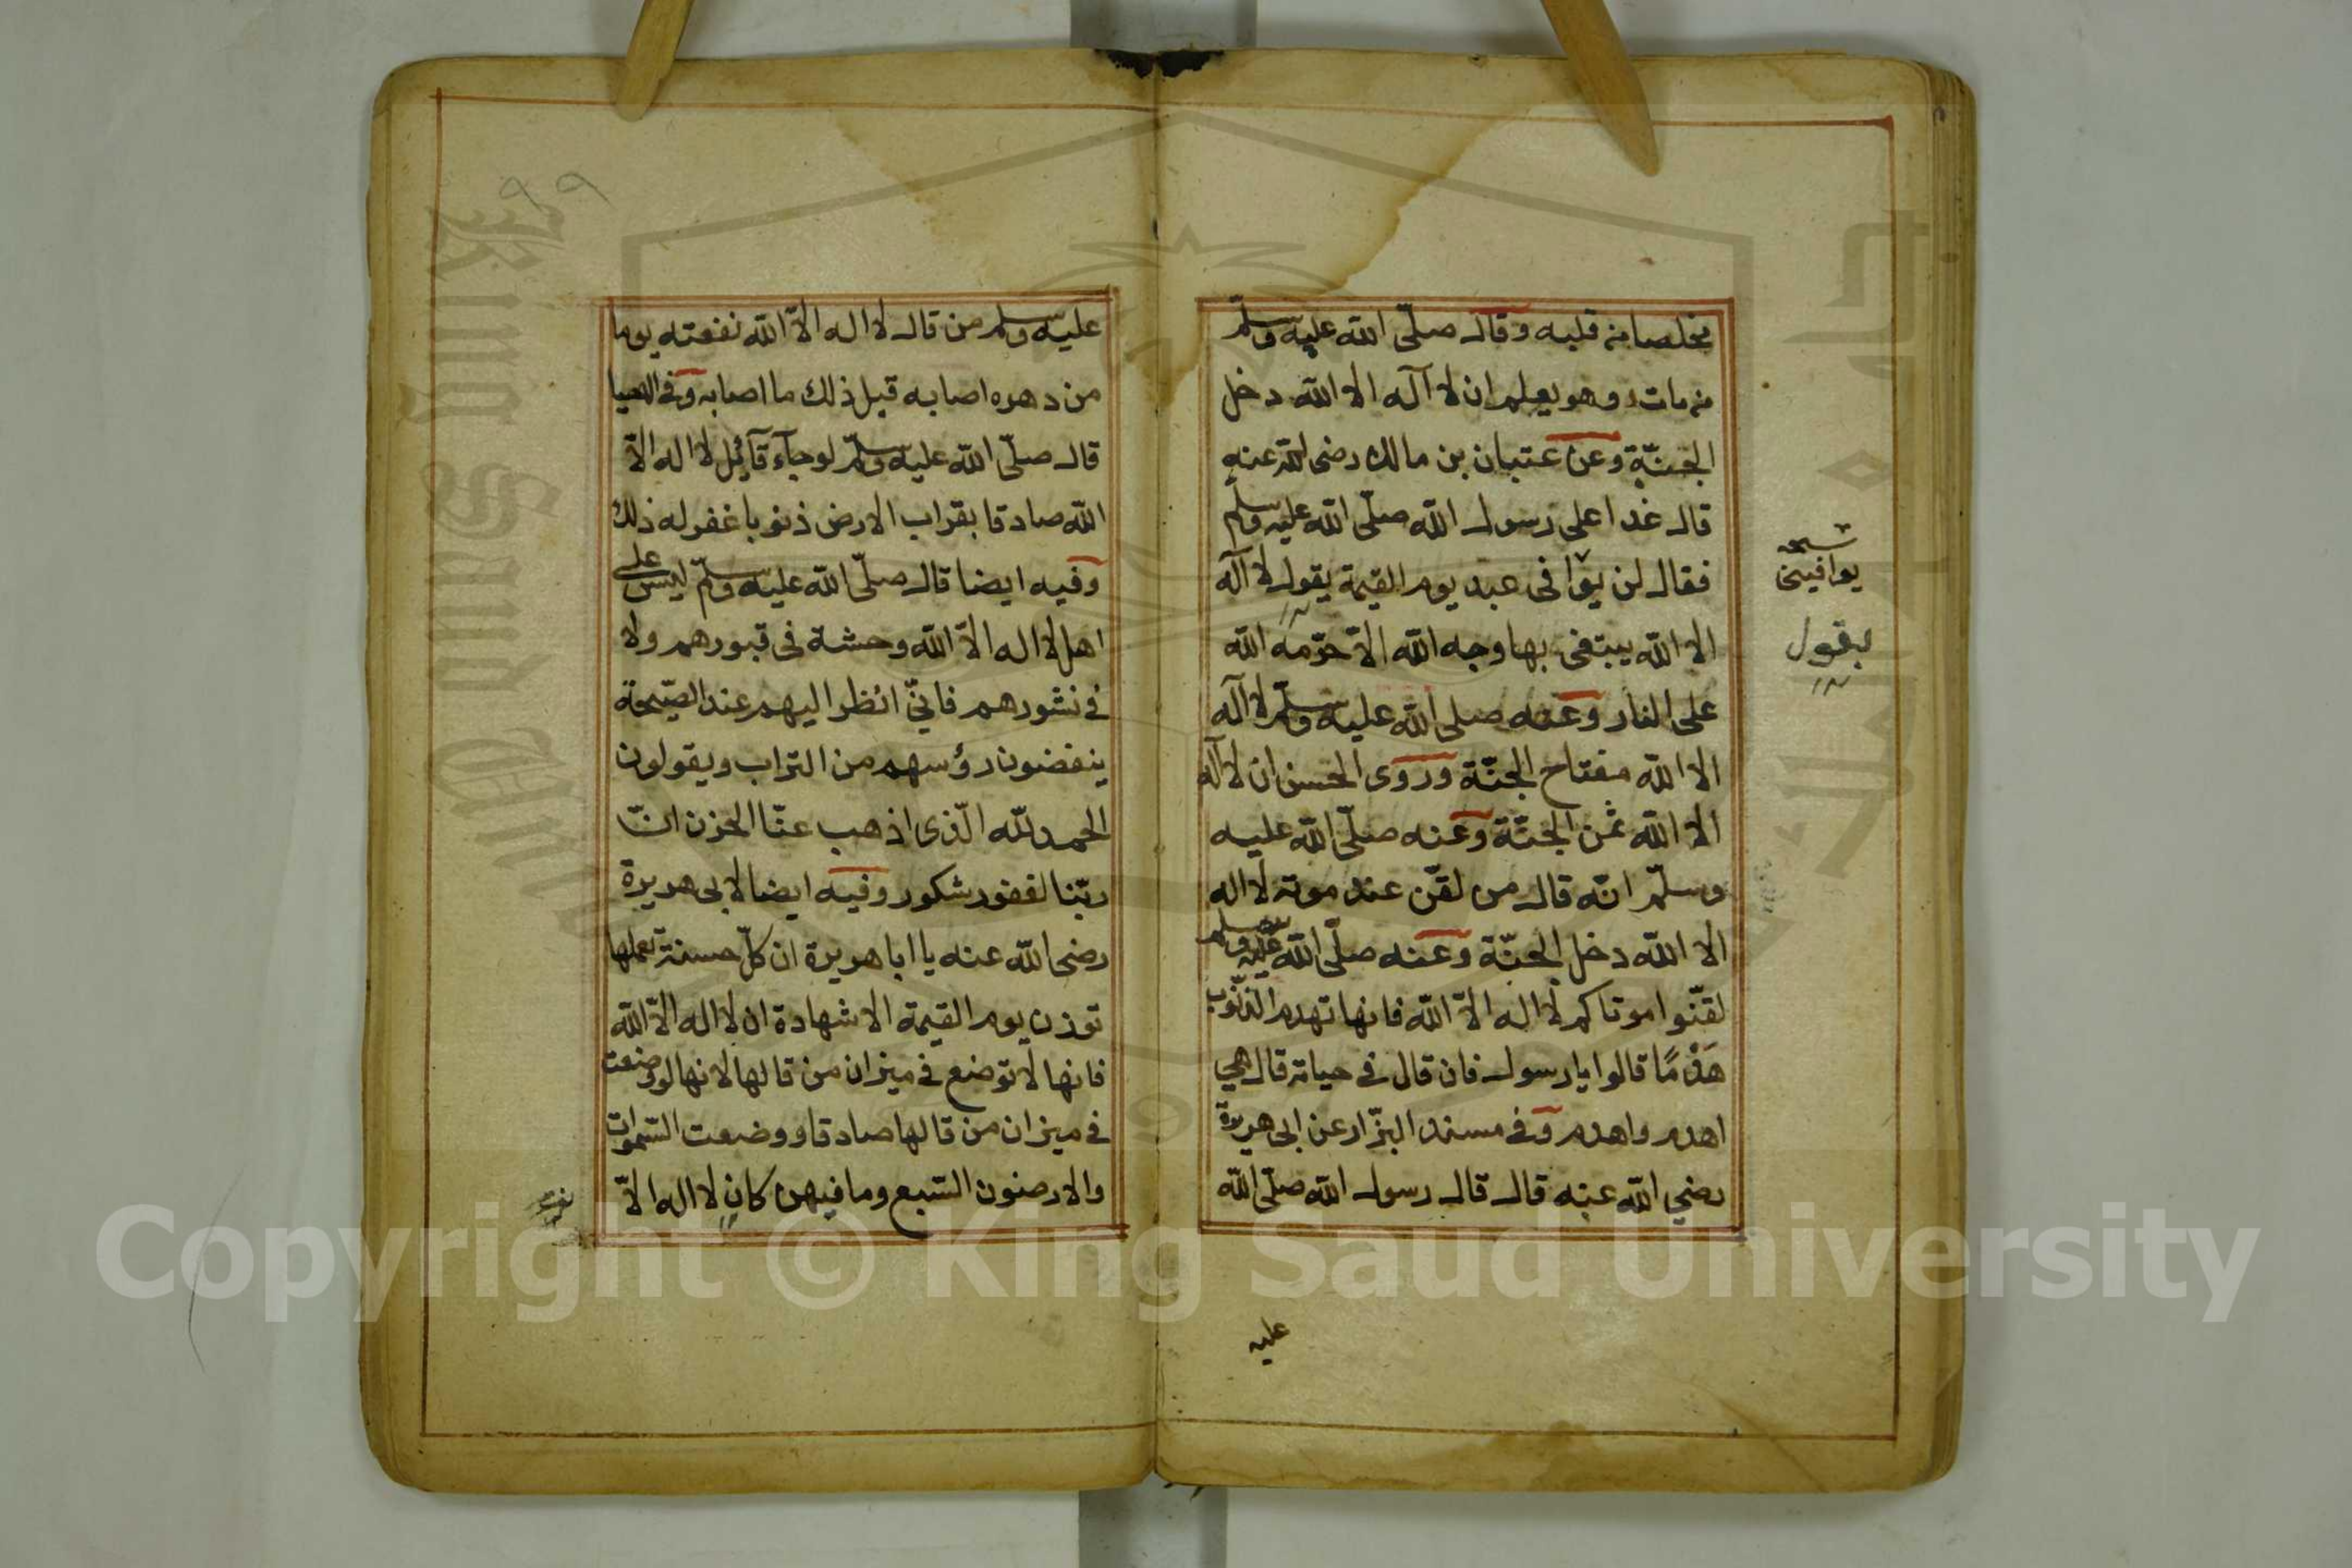 مخلصا من قلبه وقال صلّى الله عليه وسلّم
من مات وهو يعلم ان لا آله الا الله دخل
الجنّة وعن عتبان بن مالك رضى الله عنه
قال غدا على رسول الله صلّى الله عليه وسلّم
فقال لن يوافى عبد يوم القيمة يقول لا آله
الا الله يبتغى بها وجه الله الاّ حرّمه الله
على النار وعنه صلى الله عليه وسلّم لا آله
الا الله مفتاح الجنّة وروى الحسن ان لا آله
الا الله ثمن الجنّة وعنه صلّى الله عليه
وسلّم انّه قال من لقّن عند موته لا اله
الا الله دخل الجنّة وعنه صلّى الله عليه وسلم
لقّنوا موتاكم لا اله الاّ الله فانها تهدم الذّنوب
هَدْمًا قالوا يا رسول فان قال في حياته قال هي
اهدم واهدم وفي مسند البزّار عن ابى هريرة
رضي الله عنه قال قال رسول الله صلّى الله
عليه
نسخه
يوافينى
بقول
٩٩
عليه وسلم من قال لا اله الاّ الله نفعته يوما
من دهره اصابه قبل ذلك ما اصابه وفى الاحيا
قال صلّى الله عليه وسلّم لو جآء قآئل لا اله الاّ
الله صادقا بقراب الارض ذنوبا غفر له ذلك
وفيه ايضا قال صلّى الله عليه وسلّم ليس على
اهل لا اله الاّ الله وحشة فى قبورهم ولا
في نشورهم فانيّ انظر اليهم عند الصّيحة
ينفضون رؤسهم من التراب ويقولون
الحمد لله الّذى اذهب عنّا الحزن انّ
ربّنا لغفور شكور وفيه ايضا لابى هريرة
رضى الله عنه يا ابا هريرة ان كلّ حسنة تعملها
توزن يوم القيمة الا شهادة ان لا اله الاّ الله
فانها لا توضع في ميزان من قالها لانها لو وضعت
في ميزان من قالها صادقا ووضعت السّموات
والارضون السّبع وما فيهن كان لا اله الاّ
King Saud University
Copyright © King Saud University